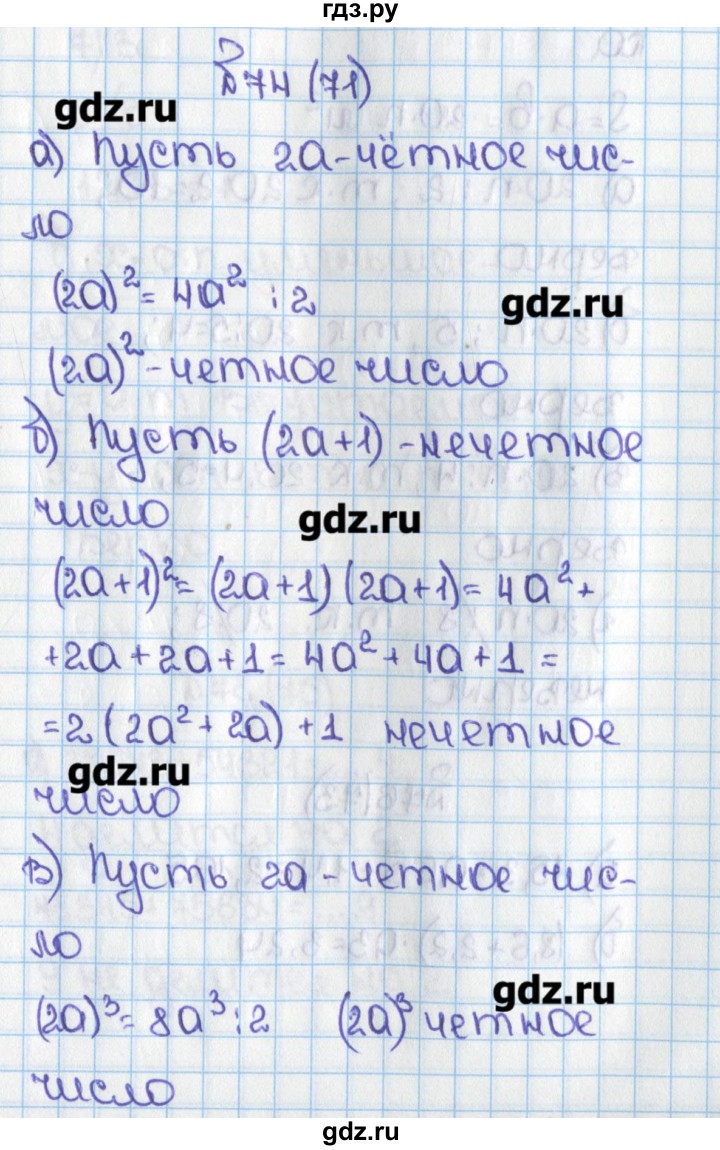 гдз.ру
№74 (71)
gdz.ru
а) Пусть 2а-чётное чис-
ло
(2а)² = 4а² ⋮ 2
gdz.ru
(2а)² - четное число
б) Пусть (2а+1) - нечетное
число
gdz.ru
(2а+1)² = (2а+1) (2а+1) = 4а² +
+2а + 2а + 1 = 4а² + 4а + 1 =
= 2 (2а² + 2а) + 1 нечетное
gdz.ru
число
в) Пусть 2а - четное чис-
ло
gdz.ru
(2а)³ = 8а³ ⋮ 2 (2а)³ четное
число
gdz.ru